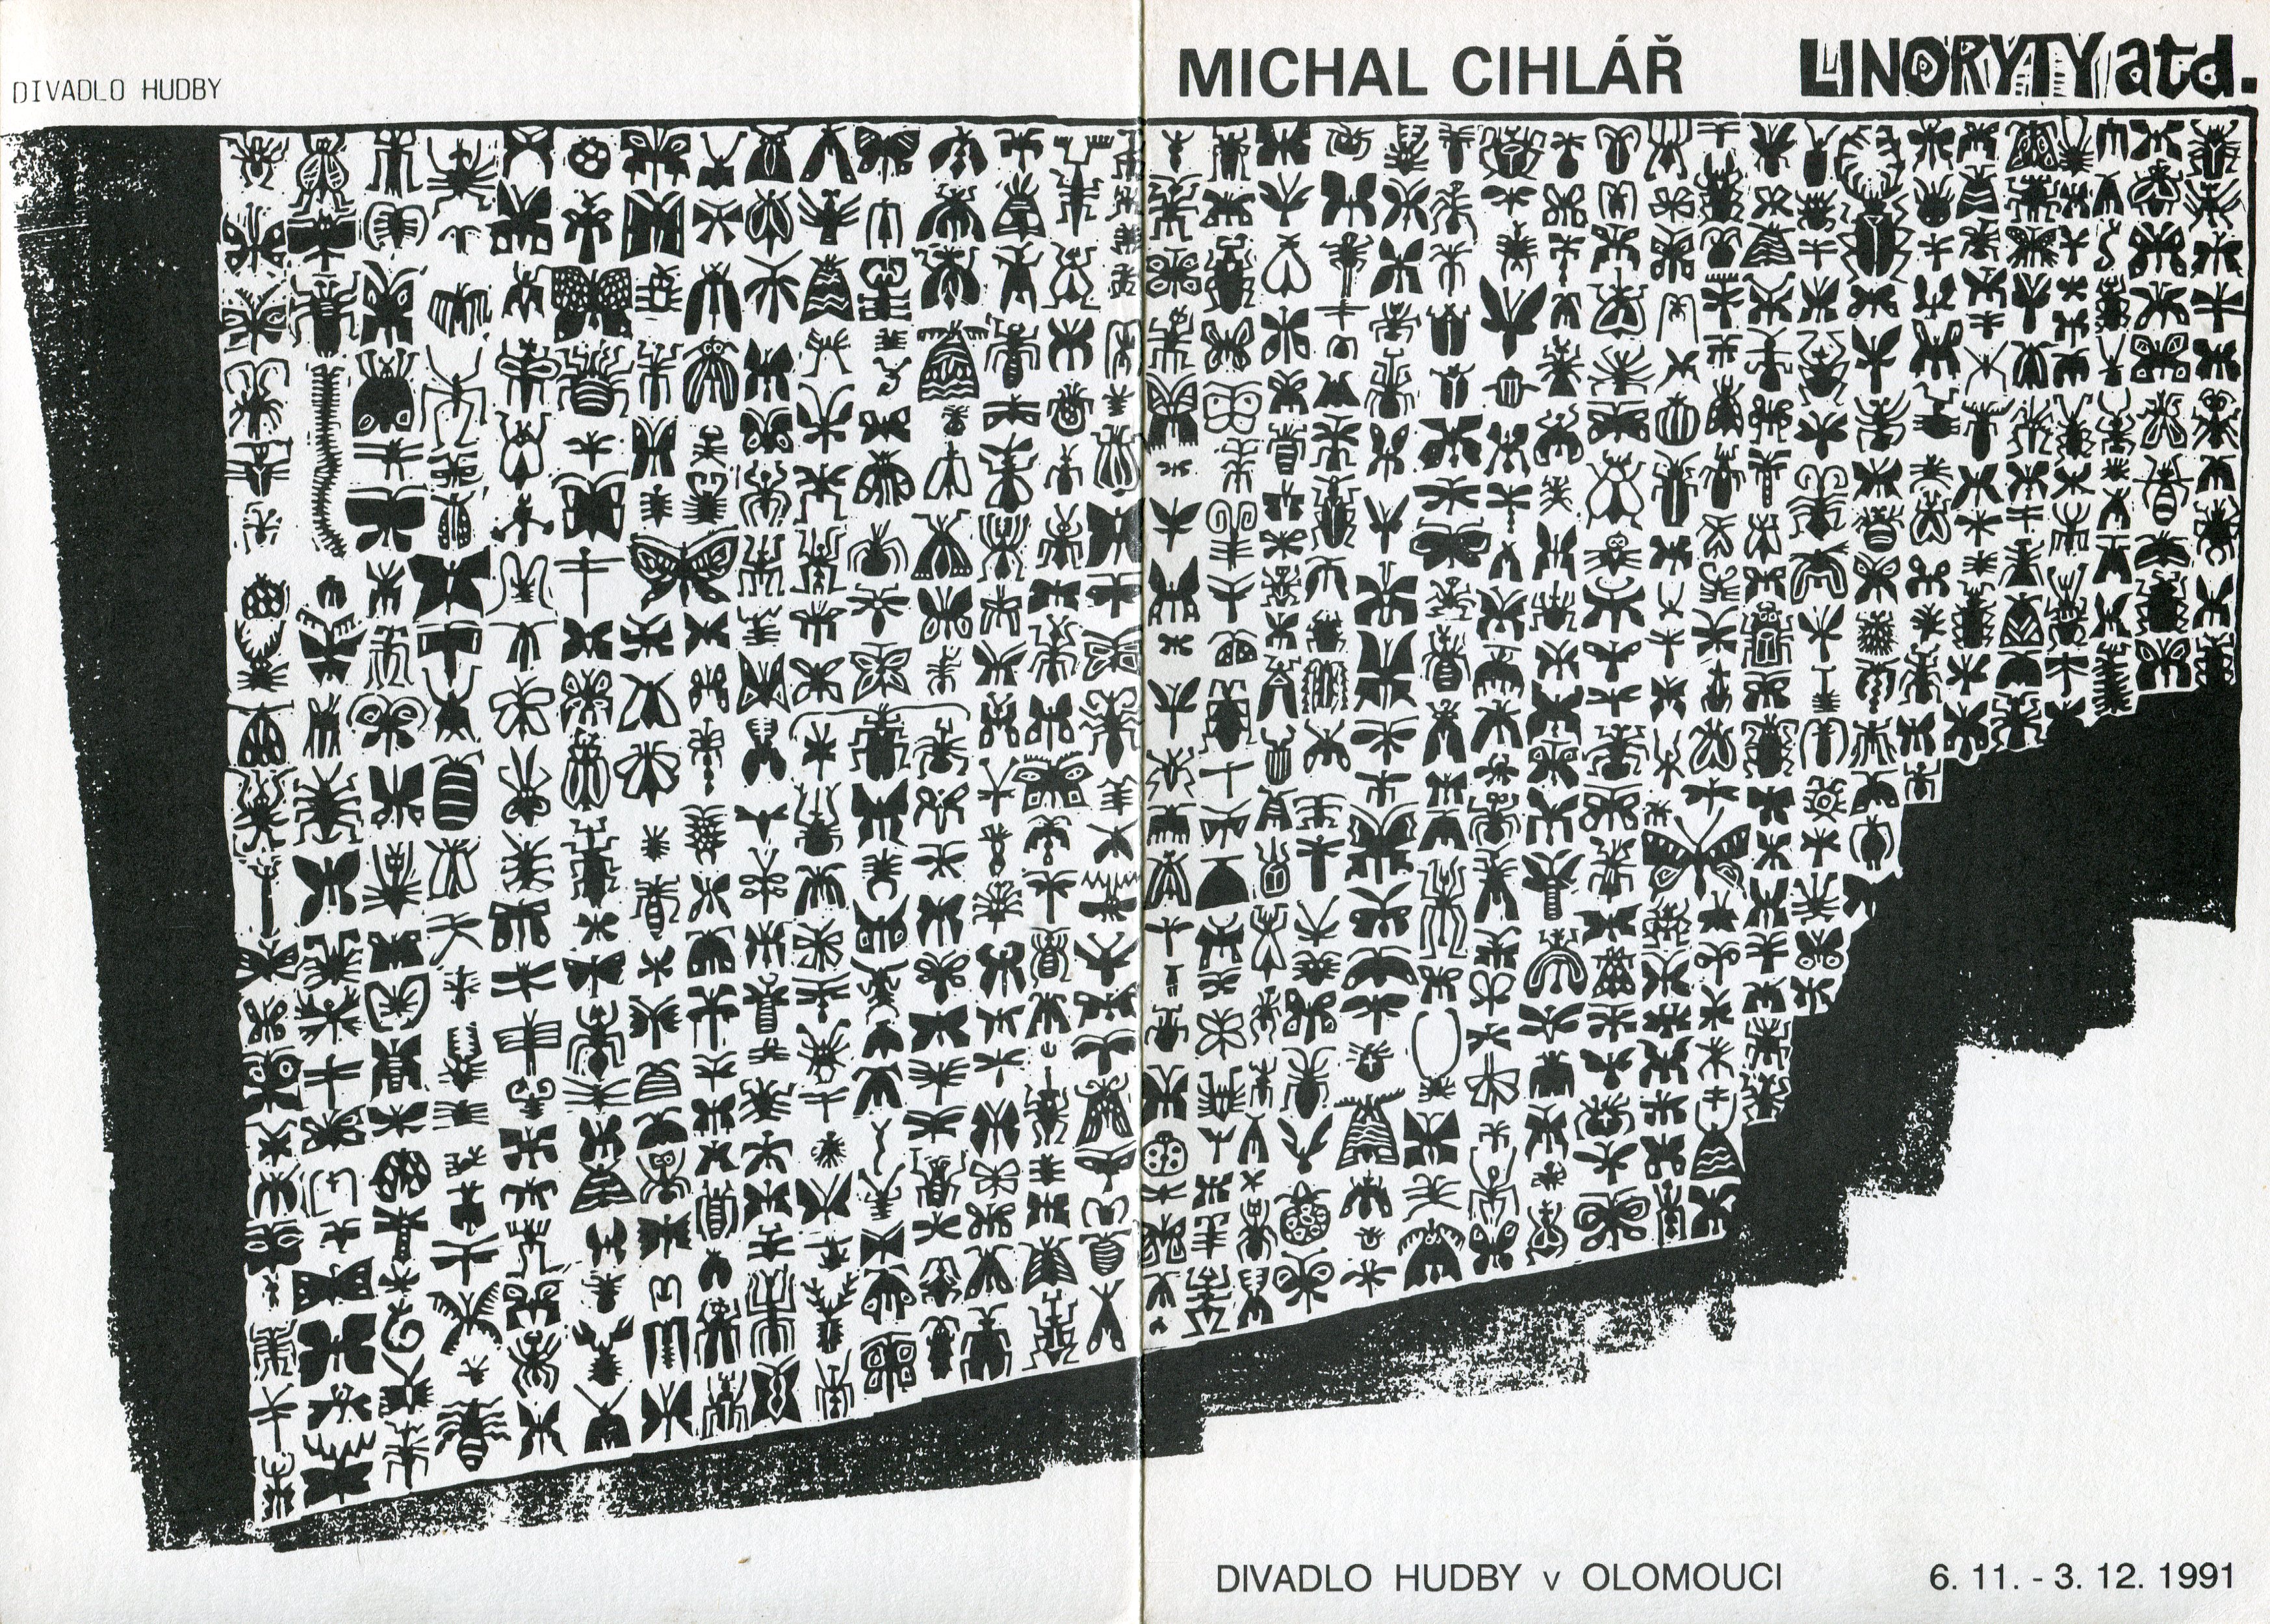 DIVADLO HUDBY
MICHAL CIHLÁŘ
LINORYTY atd.
DIVADLO HUDBY v OLOMOUCI
6. 11. - 3. 12. 1991